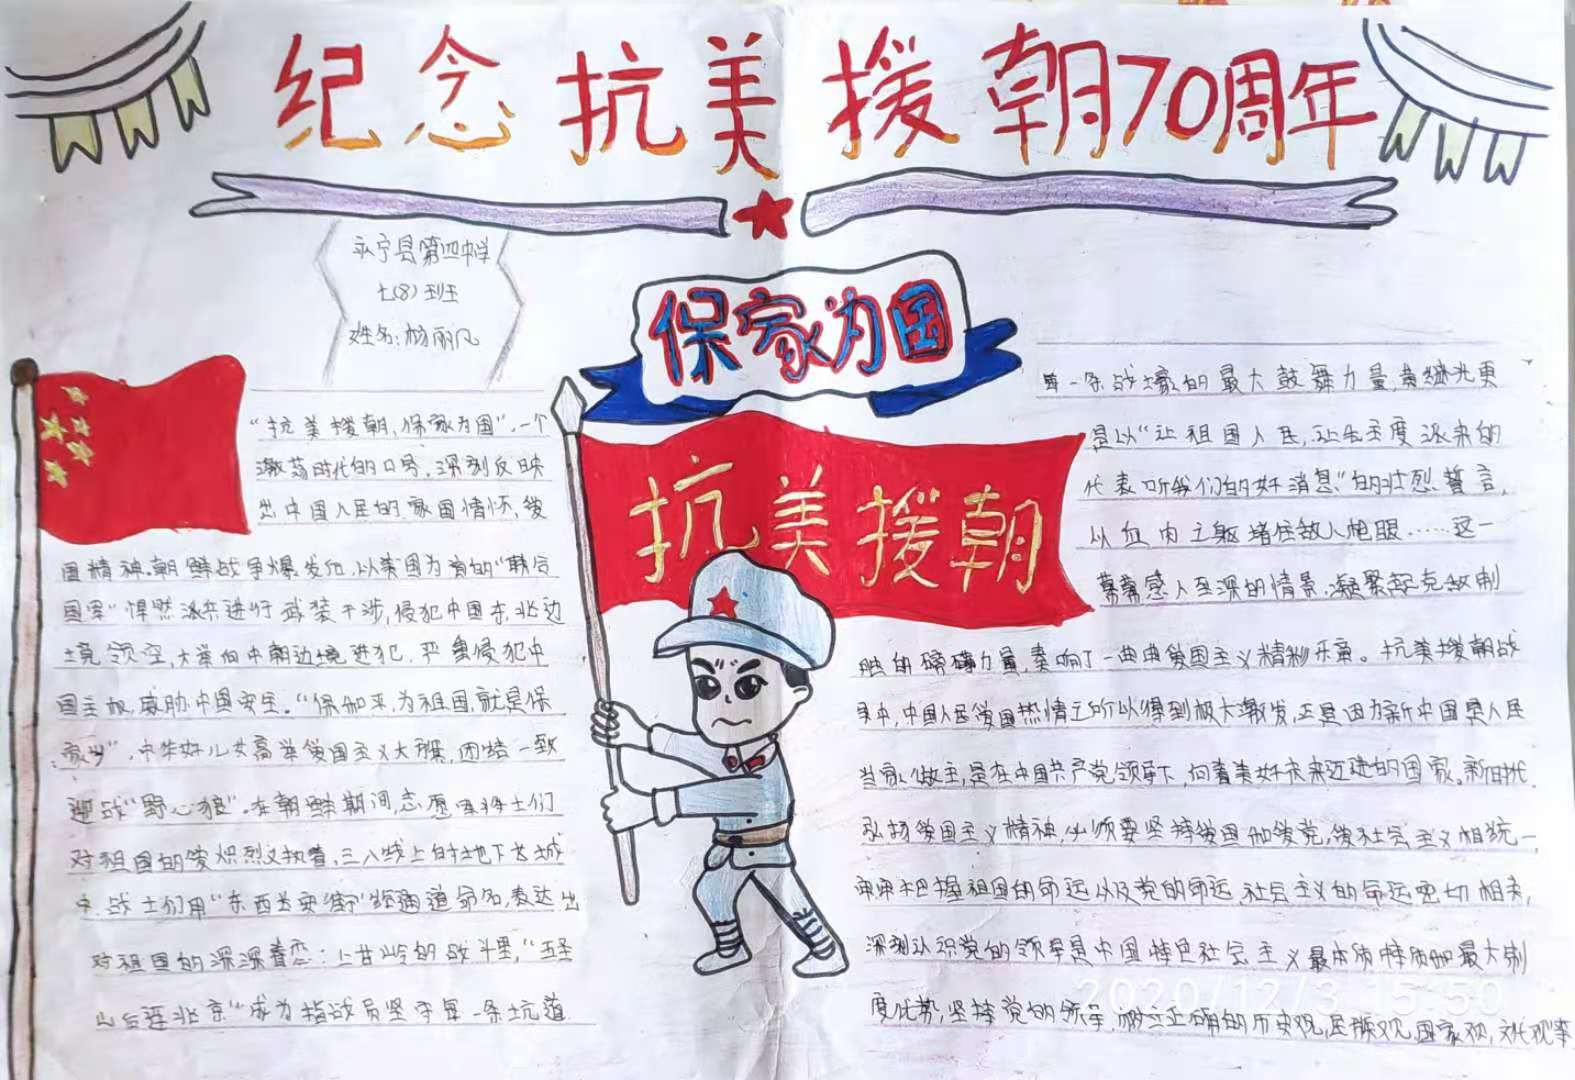 纪念抗美援朝70周年
永宁县第四中学
七(8)班
姓名:杨丽凡
保家为国
抗美援朝
"抗美援朝、保家为国",一个
激荡时代的口号,深刻反映
出中国人民的家国情怀,爱
国精神。朝鲜战争爆发后,以美国为首的"联合
国军"悍然派兵进行武装干涉,侵犯中国东北边
境领空,大举向中朝边境进犯,严重侵犯中
国主权,威胁中国安全。"保和平,为祖国,就是保
家乡",中华好儿女高举爱国主义大旗,团结一致
迎战"野心狼"。在朝鲜期间,志愿军将士们
对祖国的爱炽烈又执着,三八线上的地下长城
中,战士们用"东西长安街"给通道命名,表达出
对祖国的深深眷恋;上甘岭的战斗里,"五圣
山连北京"成为指战员坚守每一条坑道
每一条战壕的最大鼓舞力量,黄继光更
是以"让祖国人民,让
代表听我们的好消息"的壮烈誓言,
以血肉之躯堵住敌人枪眼……这一
幕幕感人至深的情景,凝聚起克敌制
胜的磅礴力量,奏响了一曲曲爱国主义精神乐章。抗美援朝战
争中,中国人民爱国热情之所以得到极大激发,正是因为新中国是人民
当家做主,是在中国共产党领导下,向着美好未来迈进的国家。
弘扬爱国主义精神,必须要坚持爱国和爱党,爱社会主义相统一,
牢牢把握祖国的命运以及党的命运,社会主义的命运密切相关,
深刻认识党的领导是中国特色社会主义最本质特质和最大制
度优势,坚持党的领导,树立正确的历史观,民族观,国家观,文化观
2020/12/3 15:50